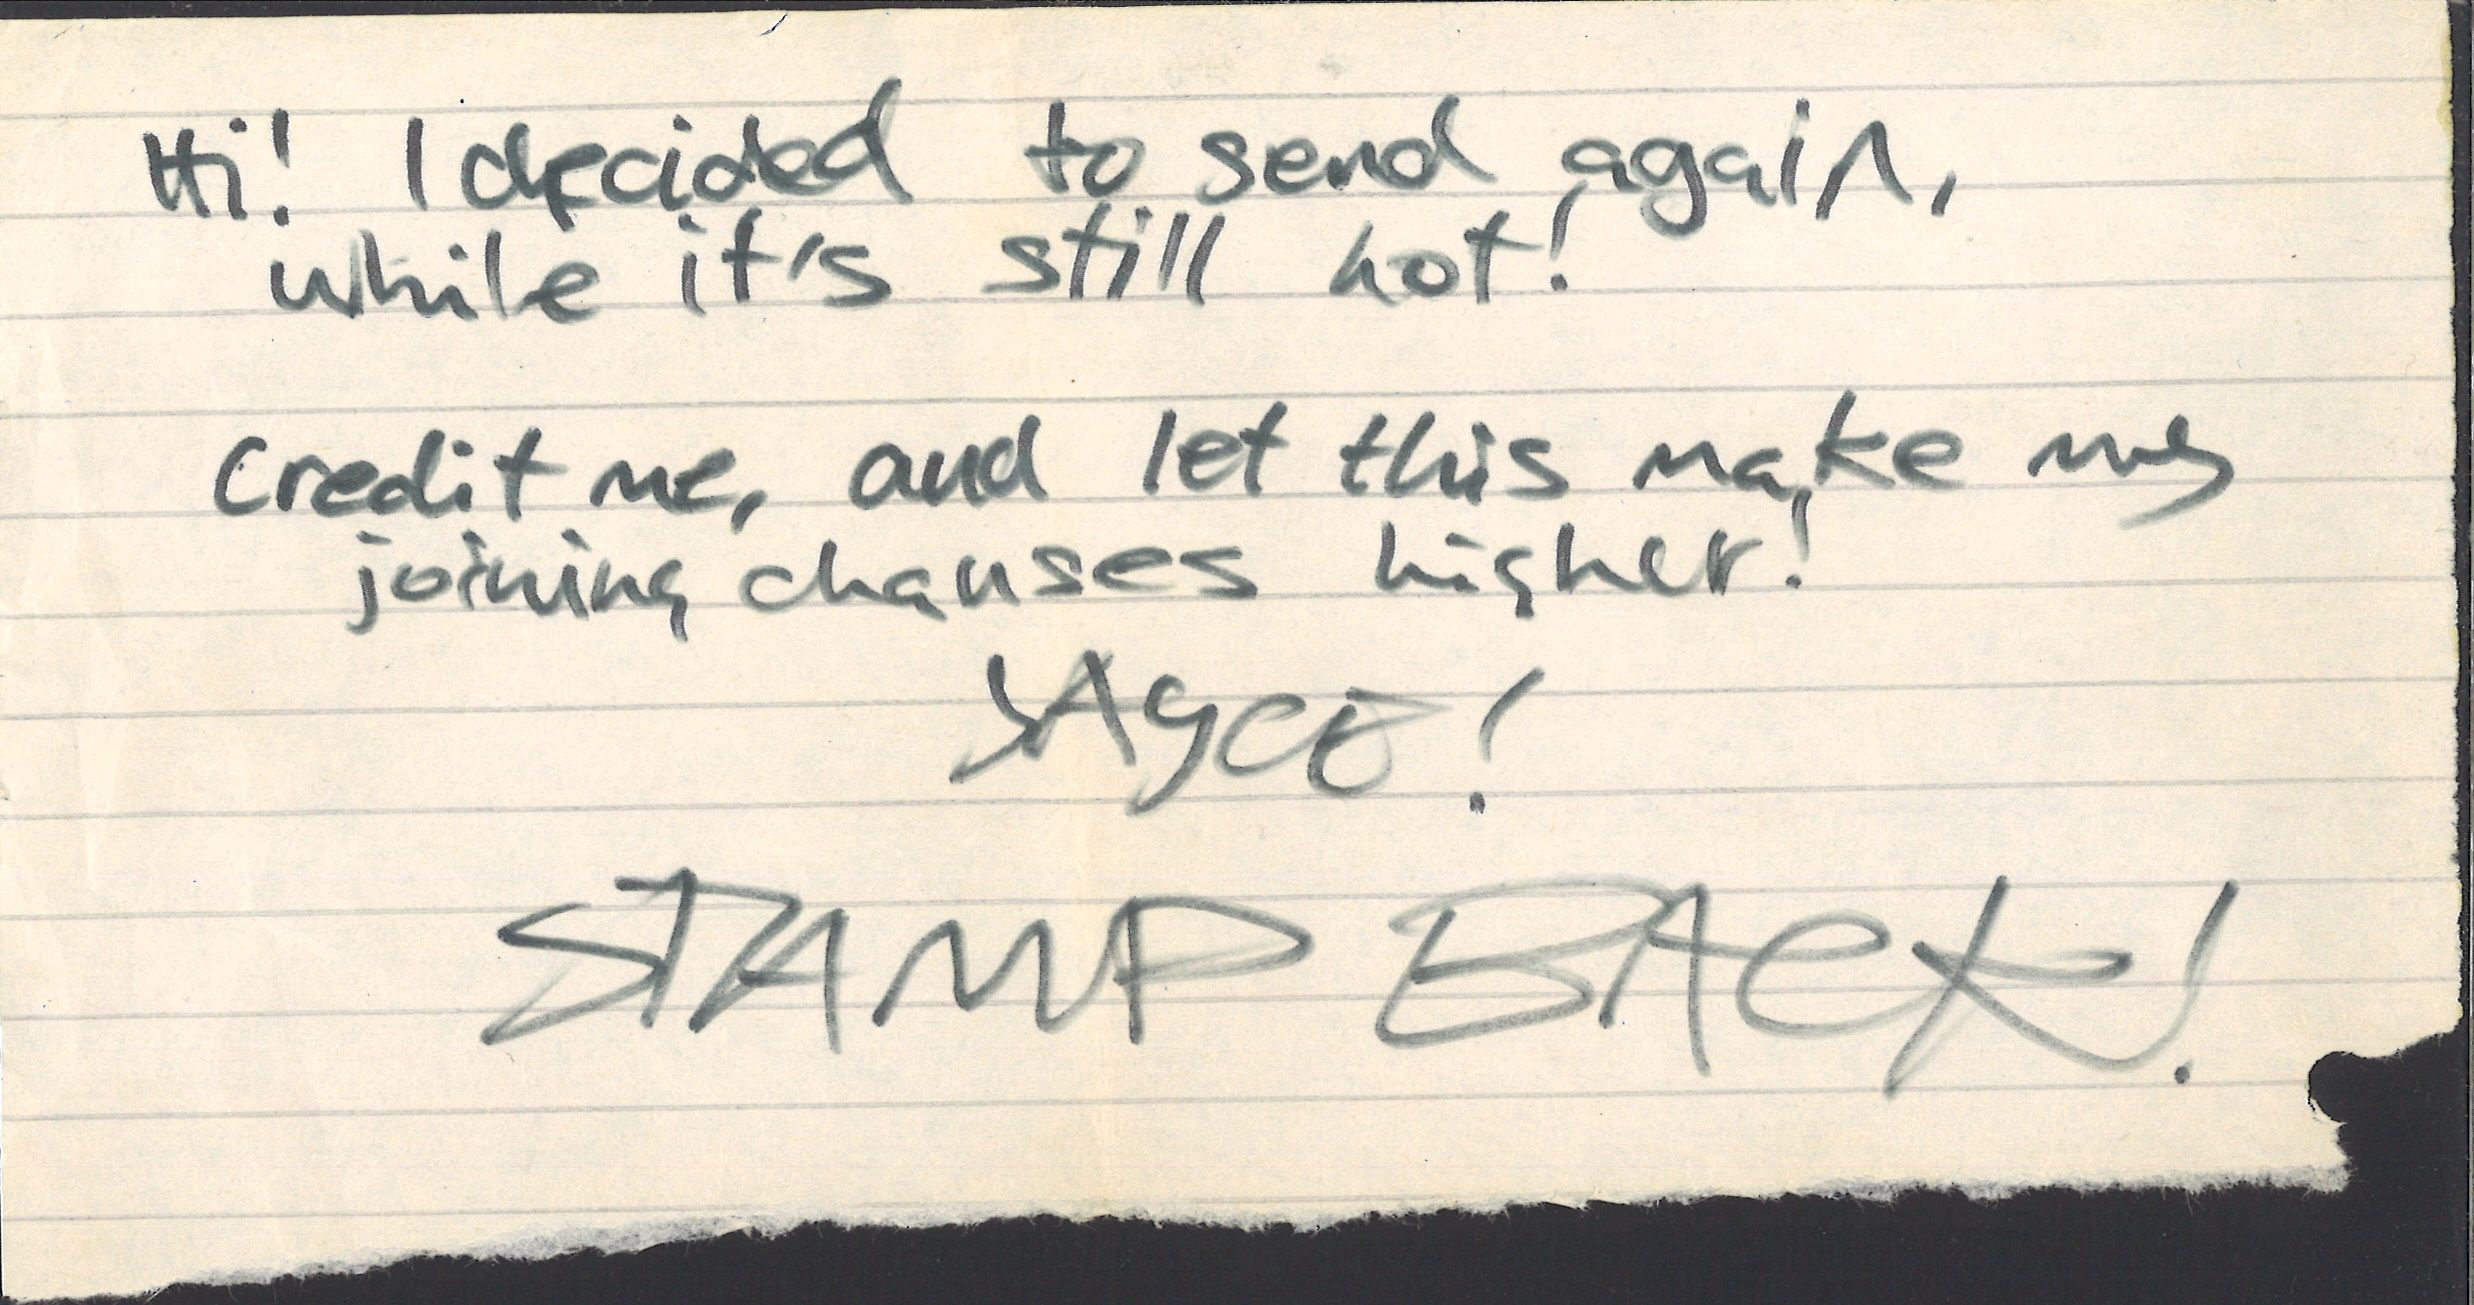 Hi! I decided to send again,
while it's still hot!
Credit me, and let this make my
joining chanses higher!
STAMP BACK!